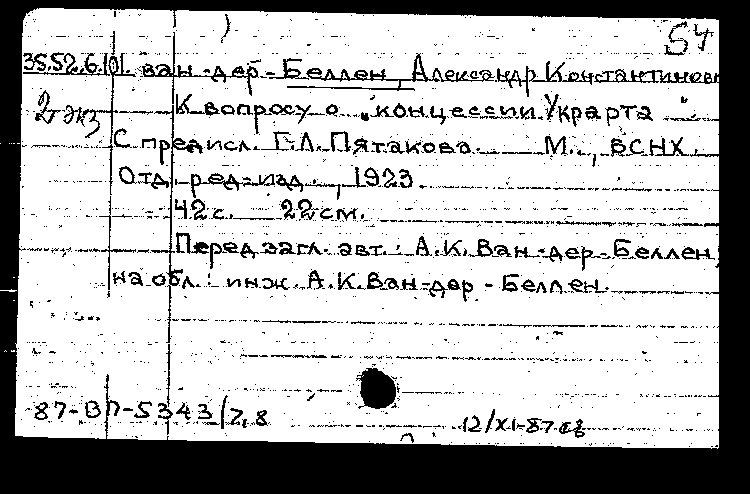 54
35.52.6.101. ван-дер-Беллен, Александр Константинович
2 экз
К вопросу о „концессии Украрта".
С предисл. Г.Л. Пятакова. М., ВСНХ.
Отд. ред-изд., 1923.
42 с. 22 см.
Перед загл. авт.: А.К. Ван-дер-Беллен,
на обл.: инж. А.К. Ван-дер-Беллен.
87-ВП-5343/7,8
12/XI-87